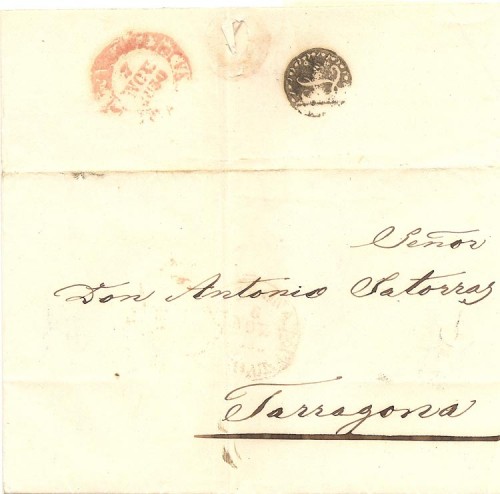 2
NOV
1850
Señor
Don Antonio Satorras
Tarragona